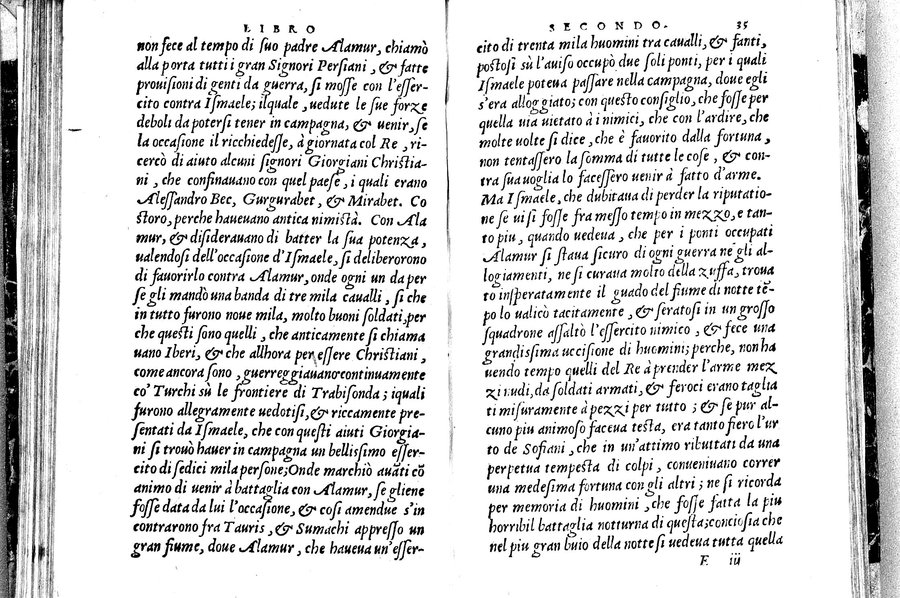 LIBRO
non fece al tempo di suo padre Alamur, chiamò
alla porta tutti i gran Signori Persiani, & fatte
prouisioni di genti da guerra, si mosse con l'esser-
cito contra Ismaele; ilquale, uedute le sue forze
deboli da potersi tener in campagna, & uenir, se
la occasione il ricchiedesse, à giornata col Re, ri-
cercò di aiuto alcuni signori Giorgiani Christia-
ni, che confinauano con quel paese, i quali erano
Alessandro Bec, Gurgurabet, & Mirabet. Co
storo, perche haueuano antica nimistà. Con Ala
mur, & disiderauano di batter la sua potenza,
ualendosi dell'occasione d'Ismaele, si deliberorono
di fauorirlo contra Alamur, onde ogni un da per
se gli mandò una banda di tre mila caualli, si che
in tutto furono noue mila, molto buoni soldati, per
che questi sono quelli, che anticamente si chiama
uano Iberi, & che allhora per essere Christiani,
come ancora sono, guerreggiauano continuamente
co' Turchi sù le frontiere di Trabisonda; iquali
furono allegramente uedotisi, & riccamente pre-
sentati da Ismaele, che con questi aiuti Giorgia-
ni si trouò hauer in campagna un bellissimo esser-
cito di sedici mila persone; Onde marchiò auāti cō
animo di uenir à battaglia con Alamur, se gliene
fosse data da lui l'occasione, & cosi amendue s'in
contrarono fra Tauris, & Sumachi appresso un
gran fiume, doue Alamur, che haueua un'esser-
SECONDO. 35
cito di trenta mila huomini tra caualli, & fanti,
postosi sù l'auiso occupò due soli ponti, per i quali
Ismaele poteua passare nella campagna, doue egli
s'era alloggiato; con questo consiglio, che fosse per
quella uia uietato à i nimici, che con l'ardire, che
molte uolte si dice, che è fauorito dalla fortuna,
non tentassero la somma di tutte le cose, & con-
tra sua uoglia lo facessero uenir à fatto d'arme.
Ma Ismaele, che dubitaua di perder la riputatio-
ne se ui si fosse fra messo tempo in mezzo, e tan-
to piu, quando uedeua, che per i ponti occupati
Alamur si staua sicuro di ogni guerra ne gli al-
logiamenti, ne si curaua molto della zuffa, troua
to insperatamente il guado del fiume di notte tē-
po lo ualicò tacitamente, & seratosi in un grosso
squadrone assaltò l'essercito nimico, & fece una
grandissima uccisione di huomini; perche, non ha
uendo tempo quelli del Re à prender l'arme mez
zi nudi, da soldati armati, & feroci erano taglia
ti misuramente à pezzi per tutto; & se pur al-
cuno piu animoso faceua testa, era tanto fiero l'ur
to de Sofiani, che in un'attimo ributtati da una
perpetua tempesta di colpi, conueniuano correr
una medesima fortuna con gli altri; ne si ricorda
per memoria di huomini, che fosse fatta la piu
horribil battaglia notturna di questa; conciosia che
nel piu gran buio della notte si uedeua tutta quella
E iii